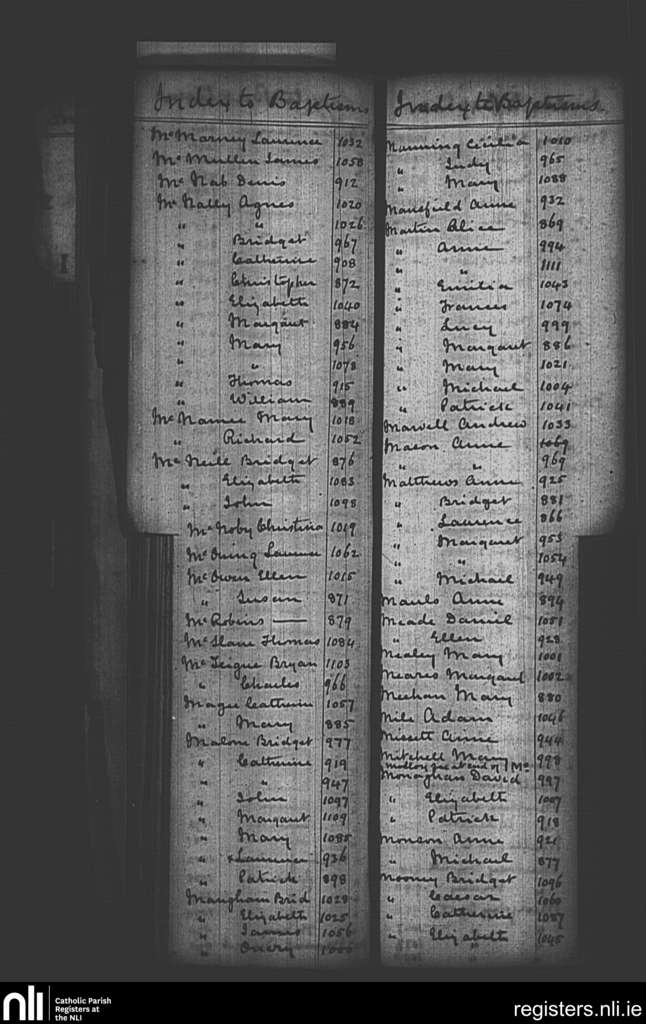 Index to Baptisms
McMarney Laurence 1032
McMullen James 1058
McNab Denis 912
McNally Agnes 1020
" " 1026
" Bridget 967
" Catherine 908
" Christopher 872
" Elizabeth 1040
" Margaret 884
" Mary 956
" " 1078
" Thomas 915
" William 889
McNamee Mary 1018
" Richard 1052
McNeill Bridget 876
" Elizabeth 1083
" John 1098
McNoby Christina 1019
McOwing Laurence 1062
McOwen Ellen 1015
" Susan 871
McRobins — 879
McSlane Thomas 1084
McTeigue Bryan 1103
" Charles 966
Magee Catherine 1057
" Mary 885
Malone Bridget 977
" Catherine 919
" " 947
" John 1097
" Margaret 1109
" Mary 1085
" x Laurence 936
" Patrick 898
Maugham Brid 1028
" Elizabeth 1025
" James 1056
"
Index to Baptisms
Manning Cecilia 1010
" Judy 965
" Mary 1088
Mansfield Anne 932
Martin Alice 869
" Anne 994
" " 1111
" Emilia 1043
" Frances 1074
" Lucy 999
" Margaret 886
" Mary 1021
" Michael 1004
" Patrick 1041
Marvell Andrew 1033
Mason Anne 1069
" " 969
Matthews Anne 925
" Bridget 881
" Laurence 866
" Margaret 953
" " 1054
" Michael 949
Mauls Anne 894
Meade Daniel 1051
" Ellen 928
Mealey Mary 1001
Meares Margaret 1002
Meehan Mary 880
Mile Adam 1046
Missett Anne 944
Mitchell Mary 998
Molloy see at end of Mc
Monaghan David 987
" Elizabeth 1007
" Patrick 918
Monson Anne 921
" Michael 877
Mooney Bridget 1096
" Caesar 1060
" Catherine 1087
" Elizabeth 1045
nli
Catholic Parish
Registers at
the NLI
registers.nli.ie